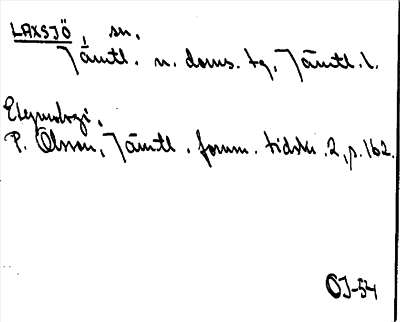 LAXSJÖ, sn.
Jämtl. n. doms. tg, Jämtl. l.
Etymologi.
P. Olsson, Jämtl. fornm. tidskr. 2, p. 162.
OJ-54